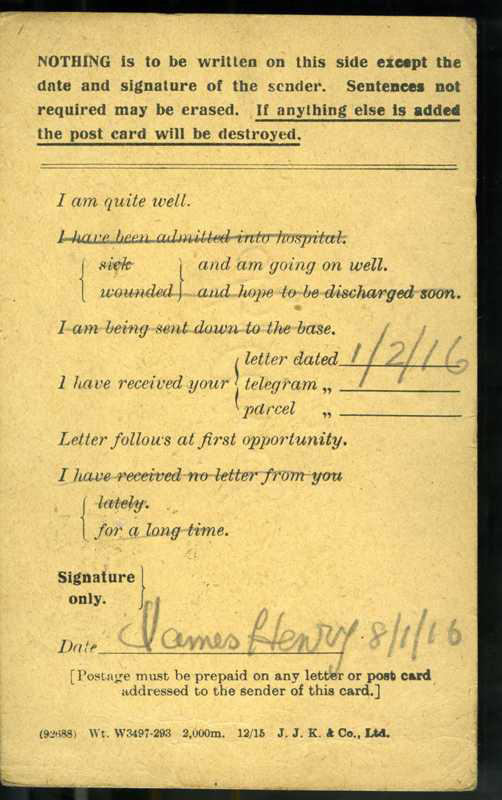 NOTHING is to be written on this side except the
date and signature of the sender. Sentences not
required may be erased. If anything else is added
the post card will be destroyed.
I am quite well.
I have been admitted into hospital.
sick } and am going on well.
wounded } and hope to be discharged soon.
I am being sent down to the base.
letter dated 1/2/16
I have received your { telegram „
parcel „
Letter follows at first opportunity.
I have received no letter from you
lately.
for a long time.
Signature
only.
James Henry 8/1/16
Date
[Postage must be prepaid on any letter or post card
addressed to the sender of this card.]
(92688) Wt. W3497-293 2,000m. 12/15 J. J. K. & Co., Ltd.